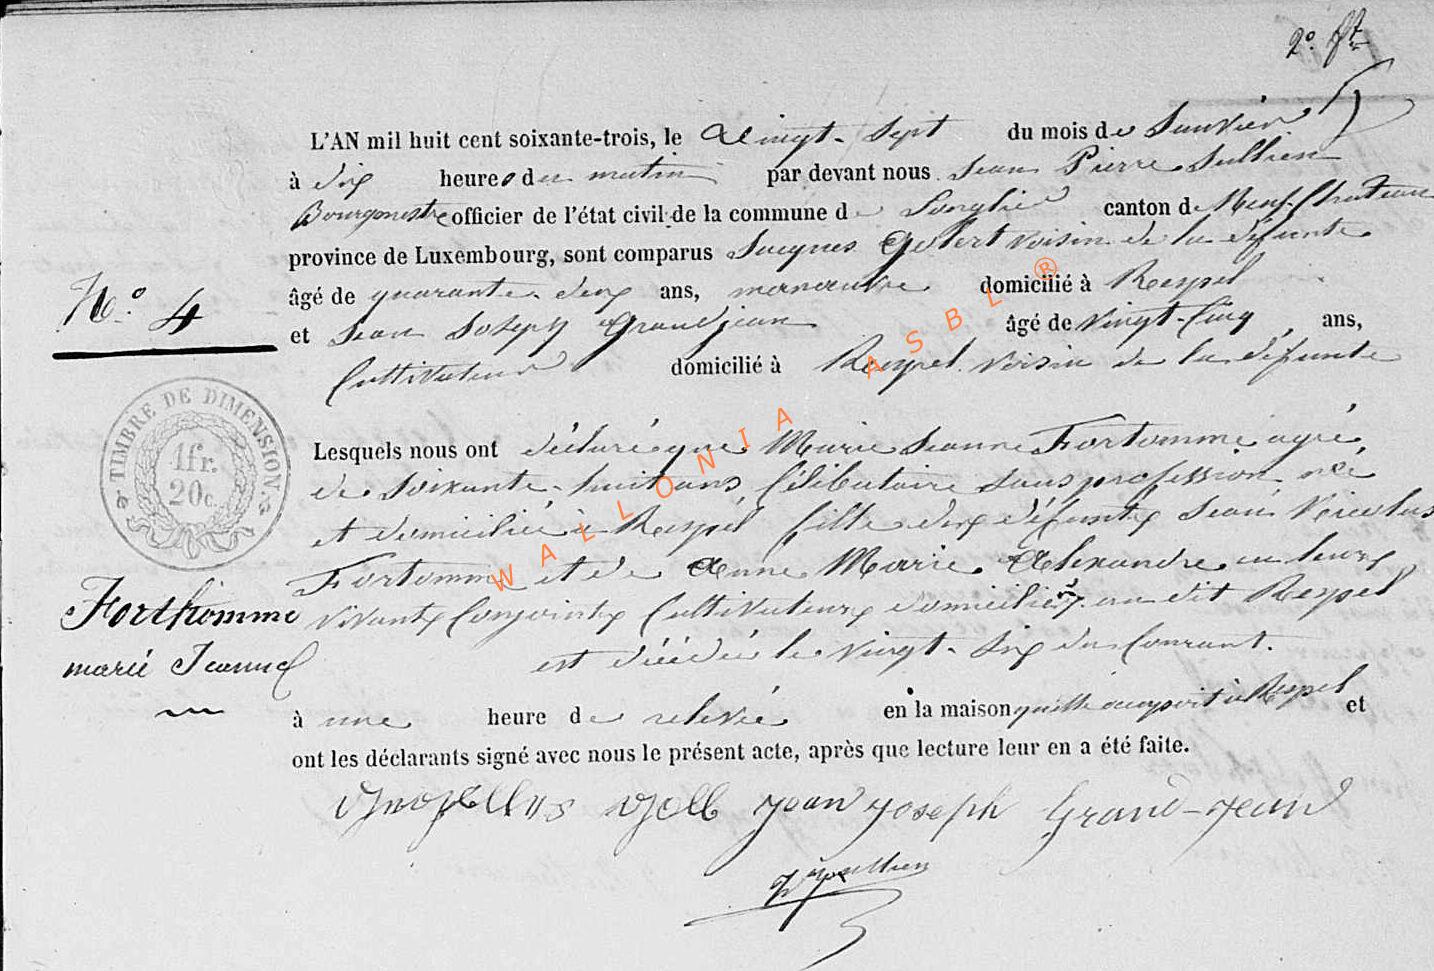 2°
L'AN mil huit cent soixante-trois, le Vingt-Sept du mois de Janvier
à dix heures du matin par devant nous Jean Pierre Jullien
Bourgmestre officier de l'état civil de la commune de Longlier canton de Neufchateau
province de Luxembourg, sont comparus Jacques voisin de la défunte
N° 4
âgé de quarante-deux ans, manœuvre domicilié à Respel
et Jean Joseph Grandjean âgé de Vingt-Cinq, ans,
Cultivateur domicilié à Respel voisin de la défunte
TIMBRE DE DIMENSION.
1fr.
20c.
Lesquels nous ont déclaré que Marie Jeanne Fortomme agée
de soixante-huit ans Célibataire sans profession née
et domiciliée à Respel fille des défunts Jean Nicolas
Fortomme et de Anne Marie Alexandre en leurs
Forthomme
marie Jeanne
vivants Conjoints Cultivateurs domiciliés au dit Respel
est décédée le vingt-six du Courant.
à une heure de relevée en la maison quelle occupoit à Respel et
ont les déclarants signé avec nous le présent acte, après que lecture leur en a été faite.
jean joseph Grand-jean
WALLONIA ASBL ®